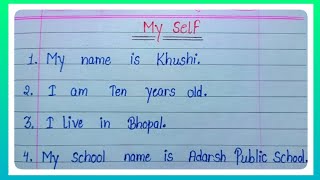 My Self
1. My name is Khushi.
2. I am Ten years old.
3. I live in Bhopal.
4. My school name is Adarsh Public School.